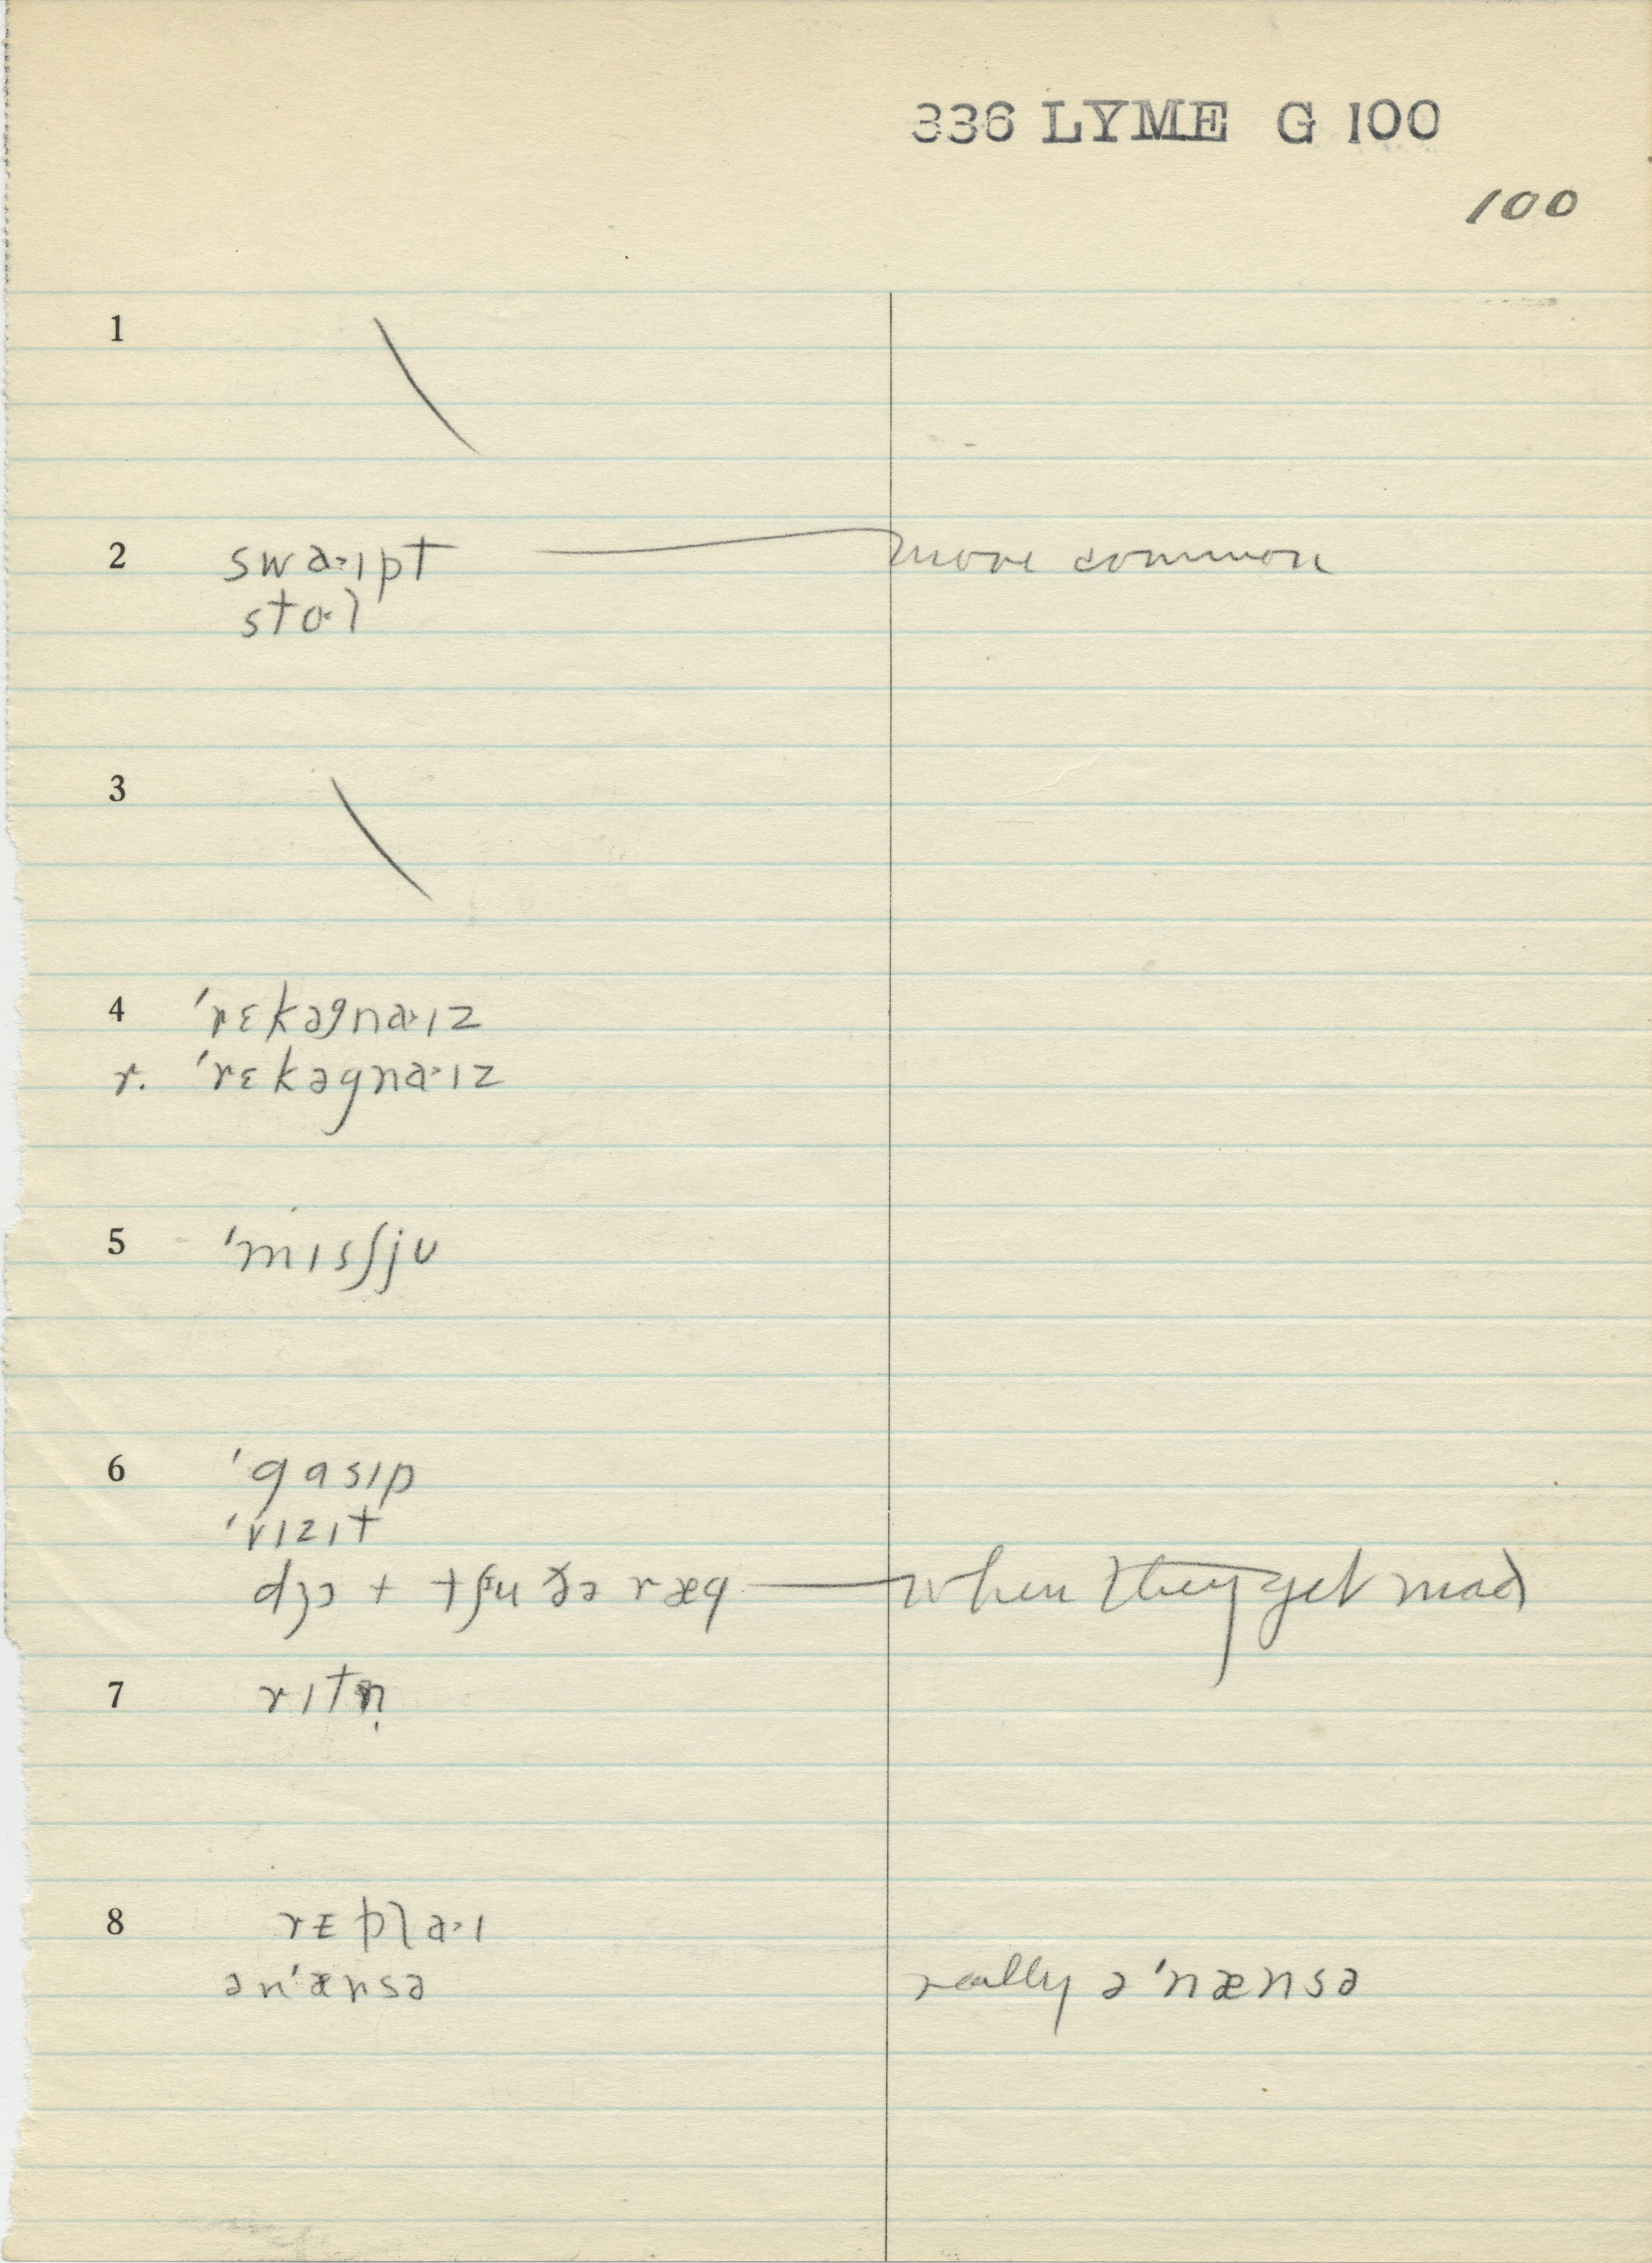 336 LYME G 100
100
1
2 swa˃ɪpt — more common
sto˂l
3
4 ˈrɛkəgna˃ɪz
r. ˈrɛkəgna˃ɪz
5 ˈmɪsʃju
6 ˈgɑsɪp
ˈvɪzɪt
dʒɔ + tʃu ðə ræg — when they get mad
7 rɪtn̩
8 rɪpla˃ɪ
ənˈænsə really əˈnænsə